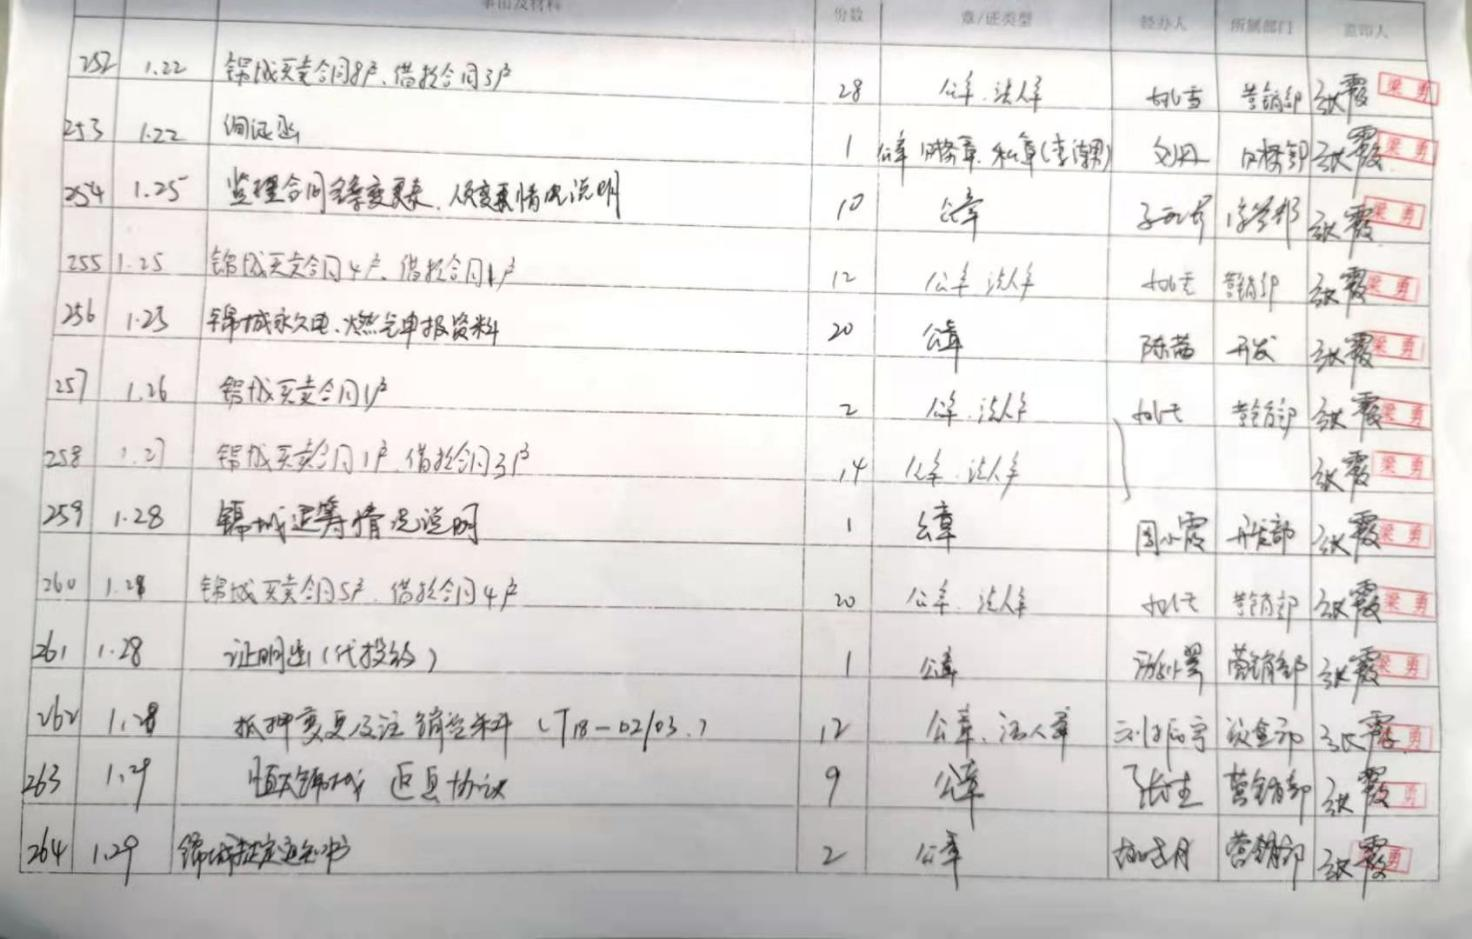 事由及材料 份数 章/证类型 经办人 所属部门 盖印人
252 1.22 锦城买卖合同8户、借款合同3户 28 公章、法人章 营销部 张霞 梁勇
253 1.22 询证函 1 公章 财务章、私章( ) 刘丹 财务部 张霞 梁勇
254 1.25 监理合同 变更表、人员变更情况说明 10 公章 张霞 梁勇
255 1.25 锦城买卖合同4户、借款合同1户 12 公章、法人章 营销部 张霞 梁勇
256 1.25 锦城永久电、燃气申报资料 20 公章 陈茜 开发 张霞 梁勇
257 1.26 锦城买卖合同1户 2 公章、法人章 营销部 张霞 梁勇
258 1.27 锦城买卖合同1户、借款合同3户 14 公章、法人章 张霞 梁勇
259 1.28 锦城 情况说明 1 公章 周小霞 开发部 张霞 梁勇
260 1.28 锦城买卖合同5户、借款合同4户 20 公章、法人章 营销部 张霞 梁勇
261 1.28 证明函(代 ) 1 公章 营销部 张霞 梁勇
262 1.28 抵押变更及注销资料(T18-02/03) 12 公章、法人章 资金部 张霞 勇
263 1.29 恒大锦城 返息协议 9 公章 营销部 张霞 勇
264 1.29 锦城 通知书 2 公章 营销部 张霞 勇